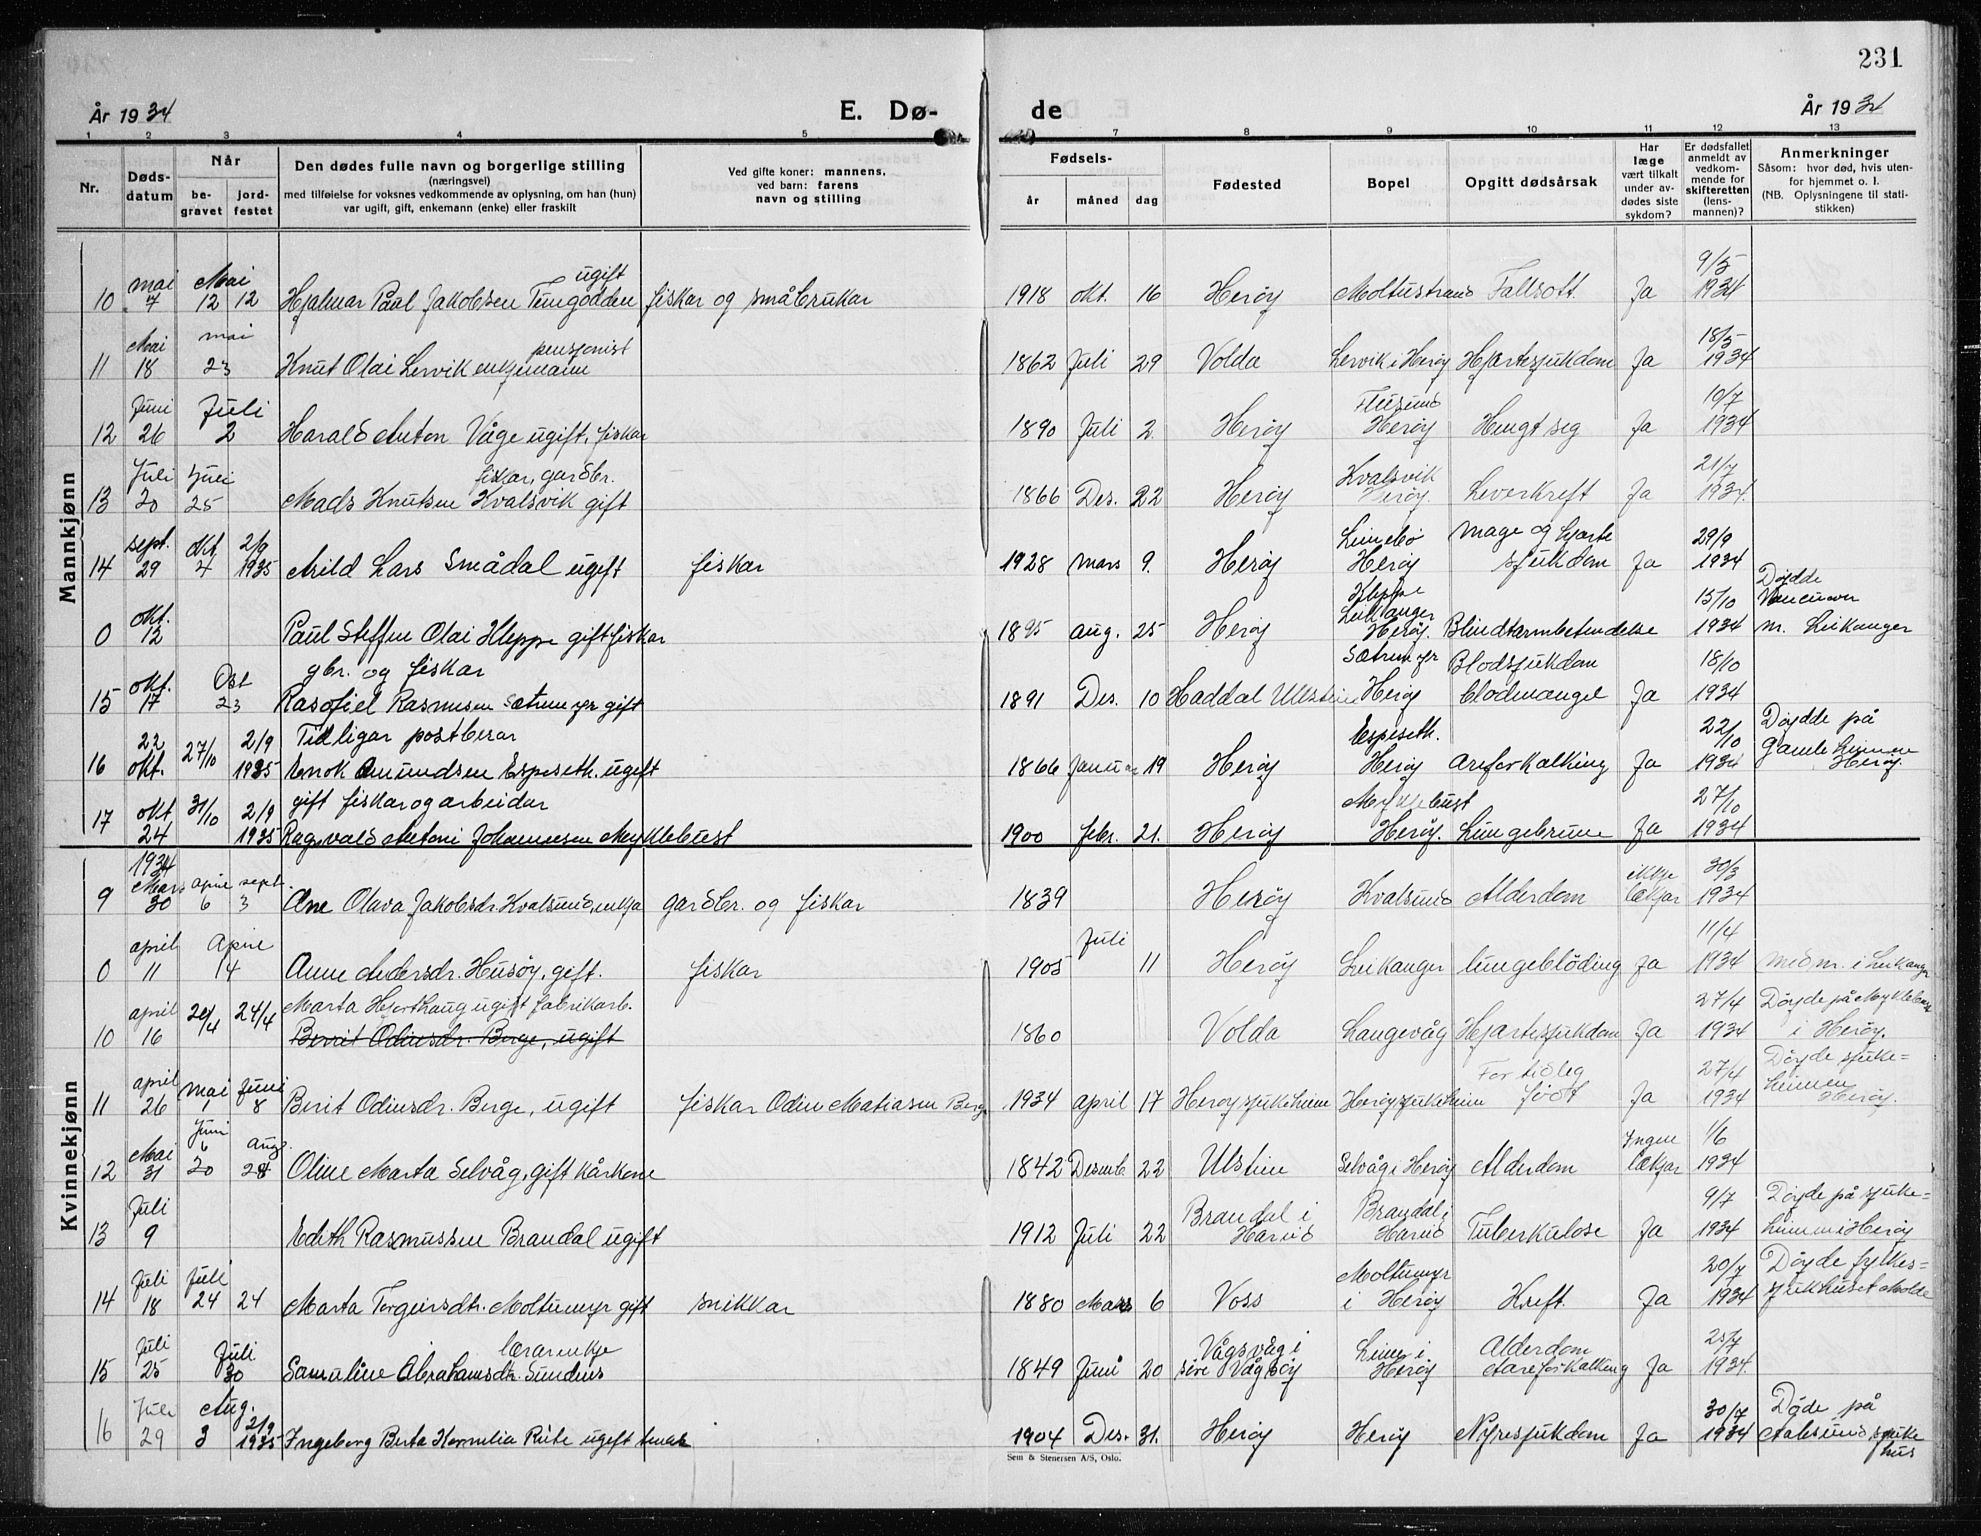 231
År 1934 E. Dø- de År 1934
1 2 3 4 5 7 8 9 10 11 12 13
Nr. Døds-datum Når be-gravet jord-festet Den dødes fulle navn og borgerlige stilling (næringsvei) med tilføielse for voksnes vedkommende av oplysning, om han (hun) var ugift, gift, enkemann (enke) eller fraskilt Ved gifte koner: mannens, ved barn: farens navn og stilling Fødsels- år måned dag Fødested Bopel Opgitt dødsårsak Har læge vært tilkalt under av-dødes siste sykdom? Er dødsfallet anmeldt av vedkom-mende for skifteretten (lens-mannen)? Anmerkninger Såsom: hvor død, hvis uten-for hjemmet o. l. (NB. Oplysningene til stati-stikken)
Mannkjønn
mai Mai ugift 9/5
10 7 12 12 Hjalmar Paul Jakobsen fiskar og småbrukar 1918 okt. 16 Herøy Moltustrand Fallsott Ja 1934
Mai mai pensjonist 18/5
11 18 23 Knut Olai Lervik enkjemann 1862 Juli 29 Volda Lervik i Herøy Hjartesjukdom Ja 1934
Juni Juli 10/7
12 26 2 Harald Anton Våge ugift, fiskar 1890 Juli 2 Herøy Herøy Hengt seg Ja 1934
Juli Juli fiskar, gardbr. Kvalsvik 21/7
13 20 25 Mads Knutsen Kvalsvik gift 1866 Des. 22 Herøy Herøy. Leverkreft Ja 1934.
sept. okt 2/9 Mage og hjarte 29/9
14 29 4 1935 Arild Lars Smådal ugift fiskar 1928 mars 9. Herøy Herøy sjukdom Ja 1934
okt. Kleppe Leikanger 15/10 Døydde Vancuver
0 12 Paul Steffen Olai Kleppe gift fiskar 1895 aug. 25 Herøy Herøy. Blindtarmbetendelse 1934 m. Leikanger
okt. Ost gbr. og fiskar Sætremyr Blodsjukdom 18/10
15 17 23 Rasmusen Sætremyr gift 1891 Des. 10 Haddal Ulstein Herøy blodmangel Ja 1934
22 2/9 Tidligar postberar Espeseth. 22/10 Døydde på gamleheimen
16 okt. 27/10 1935 Enok Amundsen Espeseth. ugift 1866 Januar 19 Herøy Herøy areforkalking Ja 1934 Herøy.
okt 31/10 2/9 gift fiskar og arbeidar Myklebust 27/10
17 24 1935 Ragnvald Antoni Johannesen Myklebust 1900 febr. 21. Herøy Herøy. Lungebrune Ja 1934
Kvinnekjønn
1934 Mars april sept. ikkje 30/3
9 30 6 3 Ane Olava Jakobsdr. Kvalsund, enkja gardbr. og fiskar 1839 Herøy Kvalsund Alderdom lækjar 1934
april April Juli 11/4
0 11 14 Anne Andersdr. Husøy, gift. fiskar 1905 11 Herøy Leikanger lungeblöding ja 1934 i Leikanger
april 24/4 24/4 Marta Hjorthaug ugift fabrikarb. 27/4 Döyde på Myklebust
10 16 Berit Odinsdr. Berge, ugift 1860 Volda Langevåg Hjartesjukdom Ja 1934 i Herøy.
april mai Juni For tidleg 27/4 Döyde sjuke=
11 26 1 8 Berit Odinsdr. Berge, ugift fiskar Odin Matiasen Berge 1934 april 17 Herøy sjukeheim Herøy sjukeheim födt Ja 1934 heimen Herøy.
Mai Juni 6 aug. Ingen 1/6
12 31 20 28 Oline Marta Selvåg, gift kårkone 1842 Desemb 22 Ulstein Selvåg i Herøy Alderdom lækjar 1934
Juli Brandal i Brandal i 9/7 Döyde på sjuke=
13 9 Edith Rasmussen Brandal ugift 1912 Juli 22 Hareid Hareid Tuberkulose Ja 1934 heimen i Herøy
Juli Juli Moltumyr 20/7 Döyde fylkes=
14 18 24 24 Marta Torgeirsdtr. Moltumyr gift snikkar 1880 Mars 6 Voss i Herøy Kreft. Ja 1934 sjukhuset Molde
Juli Juli lærarenkje Vågsvåg i Leine i Alderdom 25/7
15 25 30 Samuline Abrahamsdtr. Sundnes 1849 Juni 20 søre Vågsøy Herøy Aareforkalking Ja 1934.
Juli Aug. 2/9 30/7 Döde på
16 29 3 1935 Ingeborg Berta Kornelia Riite ugift 1904 Des. 31. Herøy Herøy Nyresjukdom Ja 1934 Aalesund sjuke
hus
Sem & Stenersen A/S, Oslo.